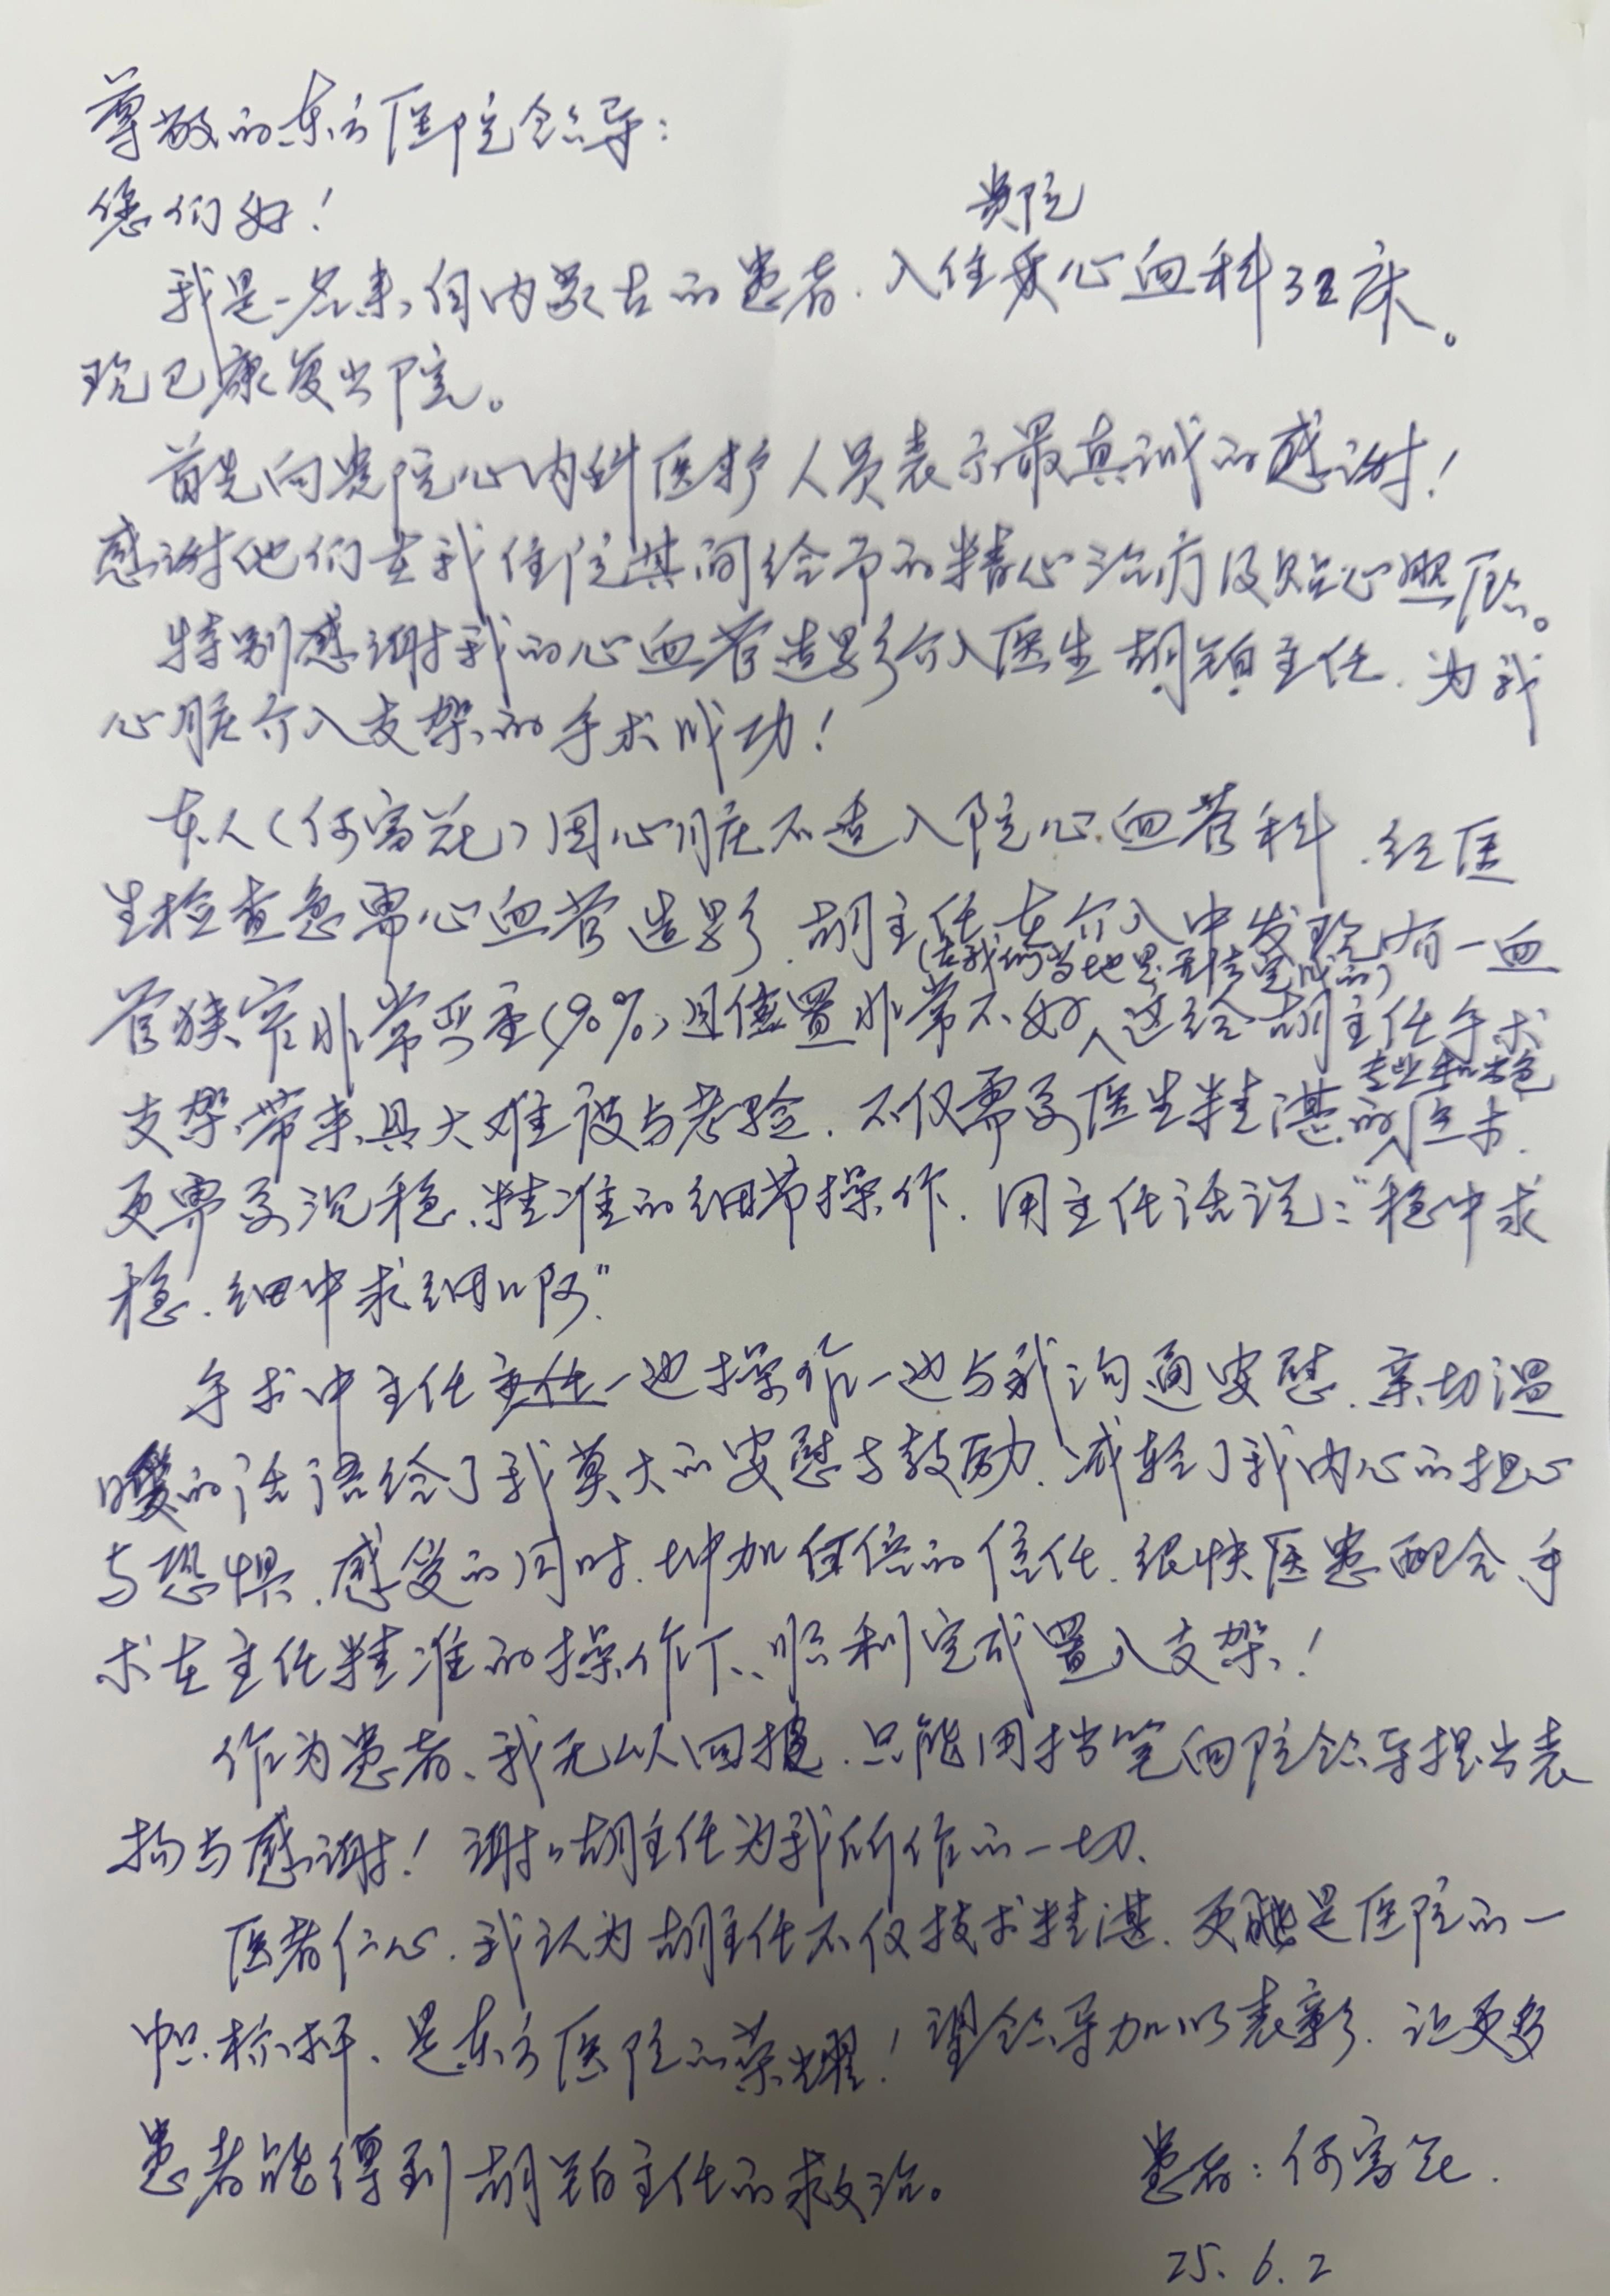 尊敬的东方医院领导：
您们好！
贵院
我是一名来自内蒙古的患者.入住心血科32床。
现已康复出院。
首先向贵院心内科医护人员表示最真诚的感谢！
感谢他们在我住院其间给予的精心治疗及贴心照顾。
特别感谢我的心血管造影介入医生胡主任.为我
心脏介入支架的手术成功！
本人(何富花)因心脏不适入院心血管科.经医
生检查急需心血管造影.胡主任在介入中发现有一血
(在我们当地是无法完成的)
管狭窄非常严重(90%)且位置非常不好,这给胡主任手术
专业和出色
支架带来具大难度与考验.不仅需要医生精湛的医术.
更需要沉稳、精准的细节操作.用主任话说:“稳中求
稳.细中求细啊”
手术中主任一边操作一边与我沟通安慰.亲切温
暖的话语给了我莫大的安慰与鼓励、减轻了我内心的担心
与恐惧.感受的同时.加倍的信任.很快医患配合、手
术在主任精准的操作下、顺利完成置入支架！
作为患者、我无以回报.只能用拙笔向院领导提出表
扬与感谢！谢谢胡主任为我所作的一切.
医者仁心.我认为胡主任不仅技术精湛.更是医院的一
帜标杆、是东方医院的荣耀！望领导加以表彰.让更多
患者能得到胡主任的救治。
患者：何富花.
25.6.2